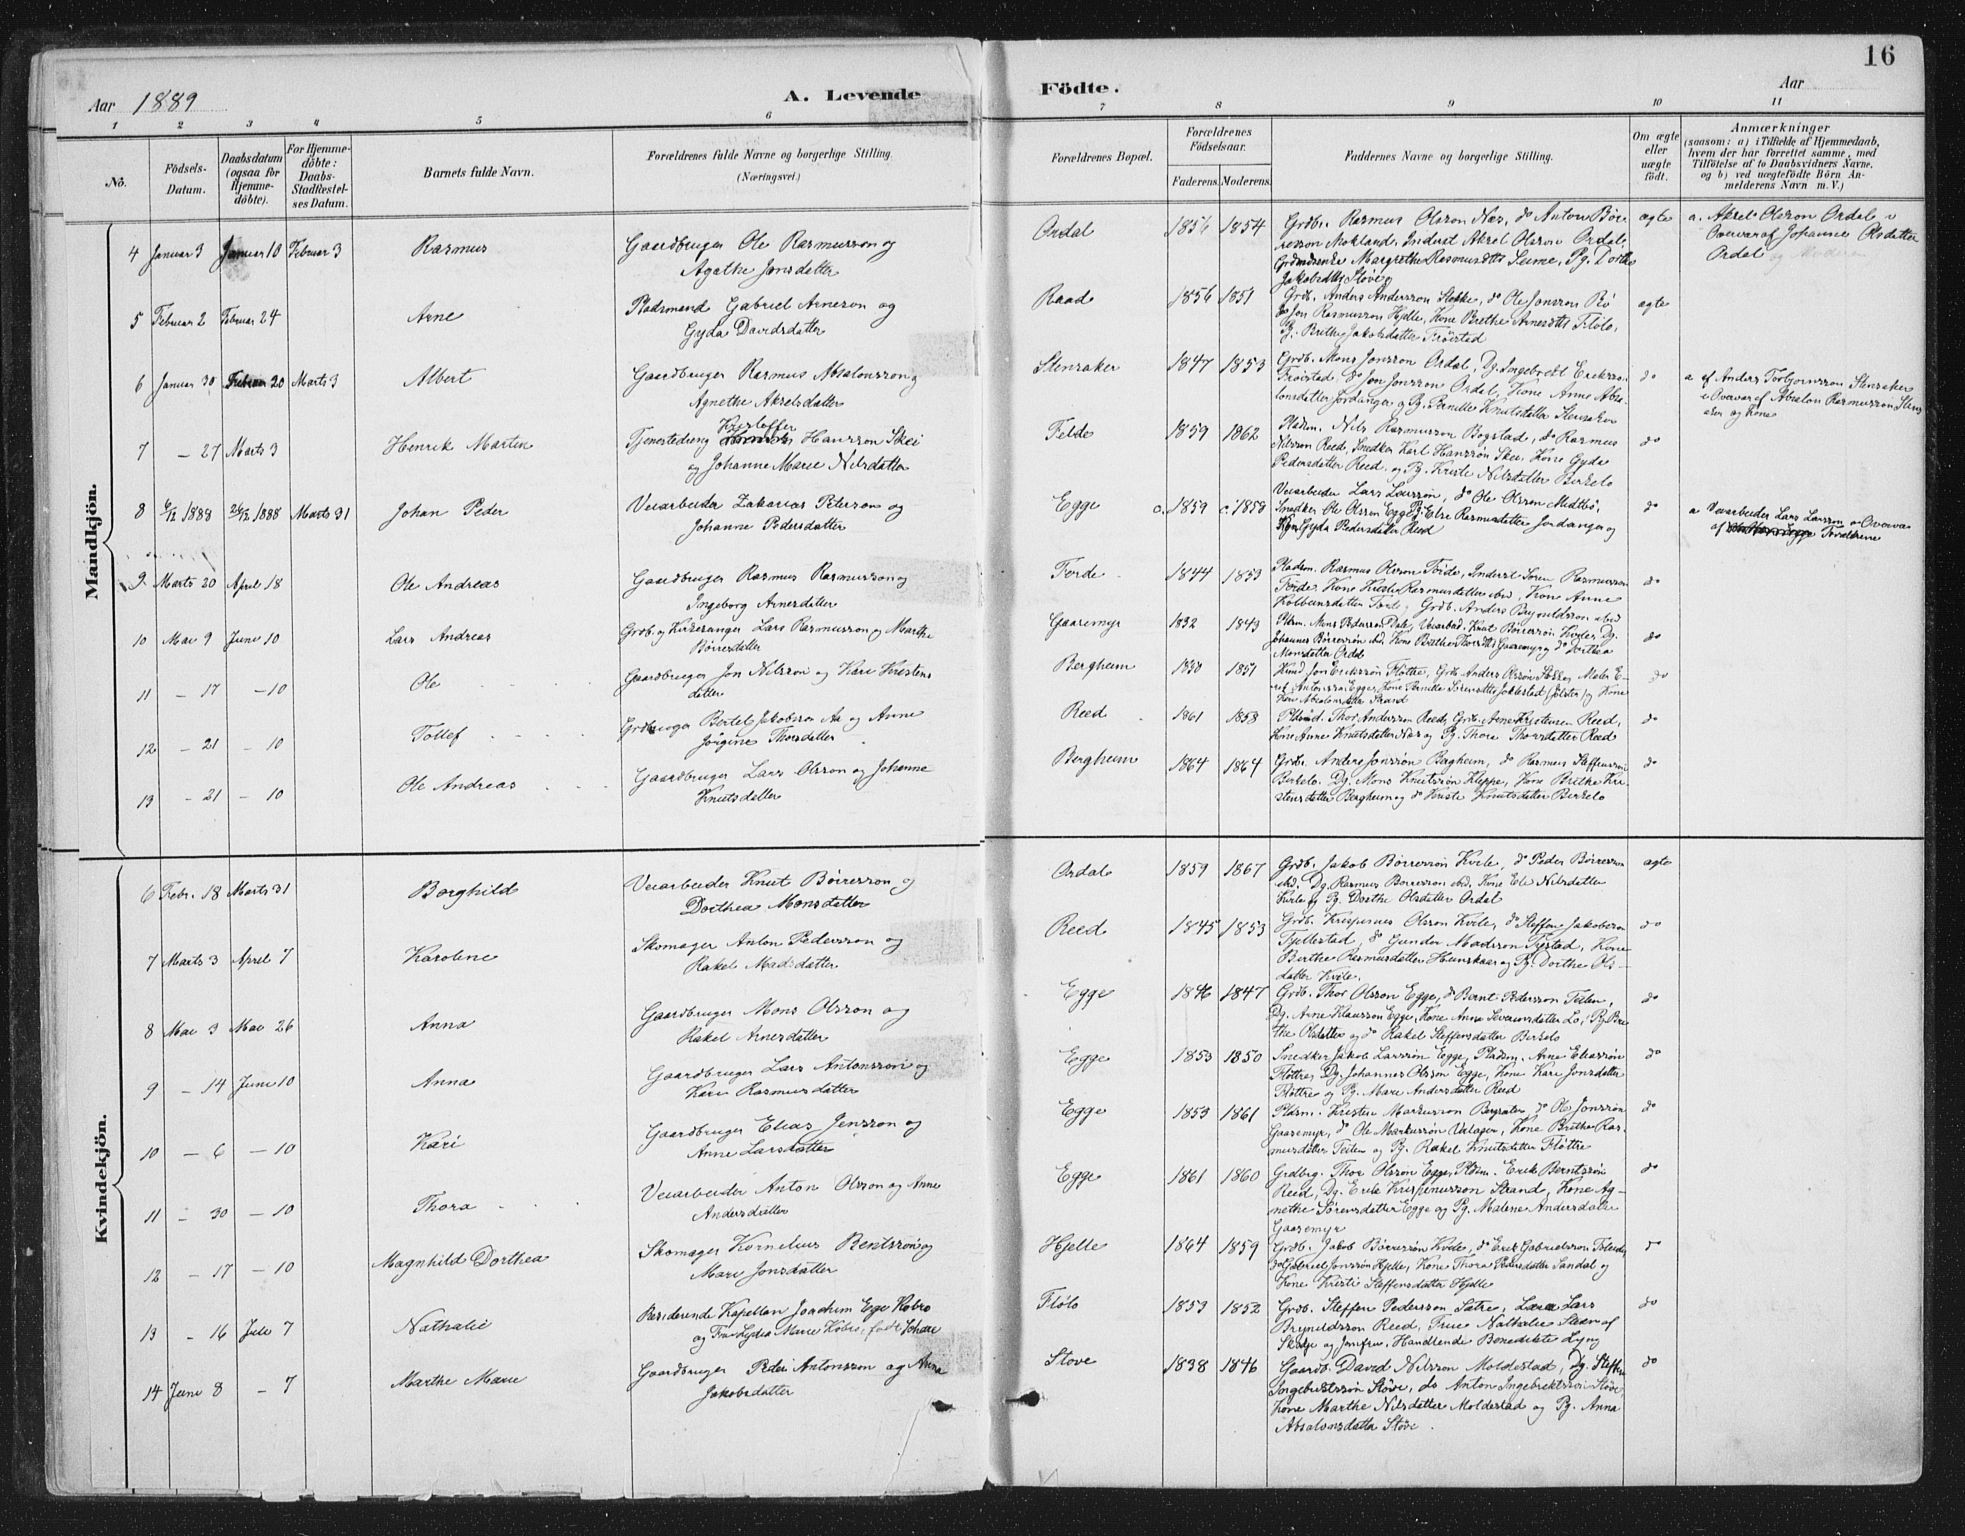 16
Aar 1889
A. Levende Födte.
Aar
1 2 3 4 5 6 7 8 9 10 11
No.
Födsels-Datum.
Daabsdatum (ogsaa for Hjemme-döbte).
For Hjemme-döbte: Daabs-Stadfæstel-ses Datum.
Barnets fulde Navn.
Forældrenes fulde Navne og borgerlige Stilling.
(Næringsvei.)
Forældrenes Bopæl.
Forældrenes Födselsaar.
Faderens. Moderens.
Faddernes Navne og borgerlige Stilling.
Om ægte eller uægte födt.
Anmærkninger
(saasom: a) i Tilfælde af Hjemmedaab, hvem der har forrettet samme, med Tilföielse af to Daabsvidners Navne. og b) ved uægtefödte Börn An-melderens Navn m. V.)
Mandkjön.
4 Januar 3 Januar 10 Februar 3 Rasmus Gaardbruger Ole Rasmusson og
Agathe Jonsdatter
Ordal 1856 1854 Grdb. Rasmus Olsson Nes, do Anton Bör-
resson Mokland, Inderst Aksel Olsson Ordal,
Margrethe Rasmusdtts Seime, Pg. Dorthe
Jakobsdtts Stöve
ægte a. Aksel Olsson Ordal i
Overvær af Johanne Olsdatter
Ordal og Moderen
5 Februar 2 Februar 24 Arne Pladsmand Gabriel Arneson og
Gyda Davidsdatter
Raad 1856 1851 Grdb. Anders Andersson Stokke, do Ole Jonsson Bö
do Jon Rasmusson Hjelle, Kone Brethe Arnesdtts Flölo,
Pg. Brithe Jakobsdatter Fröistad
ægte
6 Januar 30 Februar 20 Marts 3 Albert Gaardbruger Rasmus Absalonsson og
Agnethe Akselsdatter
Stensaker 1847 1853 Grdb. Mons Jonsson Ordal, Dg. Ingebredt Eriksson
Fröistad, do Jon Jonsson Ordal, Kone Anne Absa-
lonsdatter Jordanger og Pg. Pernille Knutsdatter Stensaker
do a. af Anders Torbjörnsson Stensaker
i Overvær af Absalon Rasmusson Stens
aker og Kone
7 – 27 Marts 3 Henrik Martin Tjenestedreng Kristoffer Hansson Skei
og Johanne Marie Nilsdatter
Felde 1859 1862 Pladsm. Nils Rasmusson Bogstad, do Rasmus
Nilsson Reed, Snedker Karl Hansson Skei, Kone Gyda
Pedersdatter Reed og Pg. Kristi Nilsdatter Birkelo
do
8 6/12 1888 26/12 1888 Marts 31 Johan Peder Veiarbeider Zakarias Peterson og
Johanne Pedersdatter
Egge c. 1859 c. 1858 Veiarbeider Lars Larssön, do Ole Olsson Midtbö,
Snedker Ole Olsson Egge, Pg. Else Rasmusdatter Jordanger og
Kone Gyda Pedersdatter Reed
do a Veiarbeider Lars Larsson i Overvær
af Forældrene
9. Marts 20 April 18 Ole Andreas Gaardbruger Rasmus Rasmusson og
Ingeborg Arnesdatter
Förde 1844 1853 Pladsm. Rasmus Olsson Förde, Inderst Sören Rasmusson
Förde, Kone Kristi Rasmusdatter ibid, Kone Anne
Kolbeinsdatter Förde, Grdb. Anders Brynildsson ibid
do
10 Mai 9 Juni 10 Lars Andreas Grdb. og Kirkesanger Lars Rasmusson og Marthe
Börresdatter
Gaasemyr 1832 1843 Plsm. Mons Pedersson Dale, Veiarbeid. Knut Börresson Kvile, Dg.
Johannes Börresson ibid, Kone Berthe Thorsdtts Gaasemyr og do Dorthea
Monsdatter Ordal
do
11 – 17 – 10 Ole Gaardbruger Jon Nilsson og Kari Kristens
datter
Bergheim 1850 1851 Jon Erikssön Flöttre, Grdb. Anders Olssön
do
12 – 21 – 10 Tollef Grdbruger Bertel Jakobson Aa og Anne
Jörgine Thorsdatter
Reed 1861 1858 Pldsmd. Thor Anderssön Reed, Grdb. Arne Kristensen Reed,
Kone Anne Knutsdatter Nes og Pg. Thora Thorsdatter Reed
do
13 – 21 – 10 Ole Andreas Gaardbruger Lars Olsson og Johanne
Knutsdatter
Bergheim 1864 1864 Grdb. Anders Jonssön Bergheim, do Rasmus Steffenssön
Birkelo, Dg. Mons Knutssön Kleppe, Kone Brithe Kri-
stensdatter Bergheim og do Kristi Knutsdatter Birkelo
do
Kvindekjön.
6 Febr. 18 Marts 31 Borghild Veiarbeider Knut Börresson og
Dorthea Monsdatter
Ordal 1859 1867 Grdb. Jakob Börresson Kvile, do Peder Börresson
ibid. Dg. Rasmus Börresson ibid. Kone Eli Nilsdatter
Kvile og Pg. Dorthe Olsdatter Ordal
ægte
7 Marts 3 April 7 Karoline Skomager Anton Pedersson og
Rakel Madsdatter
Reed 1845 1853 Grdb. Krispinus Olsson Kvile, do Steffen Jakobsson
Fjellestad, do Gunder Madsson Fystad, Kone
Berthe Rasmusdatter Hunskaar og Pg. Dorthe Ols-
datter Kvile.
do
8 Mai 3 Mai 26 Anna Gaardbruger Mons Olsson og
Rakel Arnesdatter
Egge 1846 1847 Grdb. Thor Olsson Egge, do Bernt Pedersson Teilen,
Dg. Arne Klausson Egge, Kone Anna Severinsdatter Lo, Pg. Bri-
the Olsdatter og do Rakel Steffensdatter Birkelo
do
9 – 14 Juni 10 Anna Gaardbruger Lars Antonssön og
Kari Rasmusdatter
Egge 1853 1850 Snedker Jakob Larssön Egge, Pladsm. Arne Eliassön
Flöttre, Dg. Johannes Olssön Egge, Kone Kari Jonsdatter
Flöttre og Pg. Mari Andersdatter Reed
do
10 – 6 – 10 Kari Gaardbruger Elias Jensson og
Anne Larsdatter
Egge 1853 1861 Pldsm. Kristen Markusson Bergsaker, do Ole Jonssön
Gaasemyr, do Ole Markussön Valager, Kone Brithe Ras-
musdatter Teilen og Pg. Rakel Knutsdatter Flöttre
do
11 – 30 – 10 Thora Veiarbeider Anton Olsson og Anne
Andersdatter
Egge 1861 1860 Grdbrg. Thor Olssön Egge, Pldsm. Erik Berntssön
Reed, Dg. Erik Krispinusson Strand, Kone Ag-
nethe Sörensdatter Egge og Pg. Malene Andersdatter
Gaasemyr
do
12 – 17 – 10 Magnhild Dorthea Skomager Kornelius Bentsson og
Mari Jonsdatter
Hjelle 1864 1859 Grdb. Jakob Börressön Kvile, do Erik Gabrielsson
do Gabriel Jonssön Hjelle, Kone Thora Sandal og
Kone Kristi Steffensdatter Hjelle
do
13 – 16 Juli 7 Nathalie Residerende Kapellan Joachim Ege Kobro
og Fru Lydia Marie Kobro, födt
Flölo 1853 1852 Grdb. Steffen Pedersson Sætre, Lærer Lars
Brynildsson Reed, Frue Nathalie Steen af
og Jomfru, Handlende Benedikte Lyng
do
14 Juni 8 – 7 Marthe Marie Gaardbruger Peder Antonsson og Anna
Jakobsdatter
Stöve 1838 1846 Gaardb. David Nilsson Moldestad, Dg. Steffen
Ingebrigtssön Stöve, do Anton Ingebrektssön Stöve,
Kone Marthe Nilsdatter Moldestad og Pg. Anna
Absalonsdatter Stöve.
do